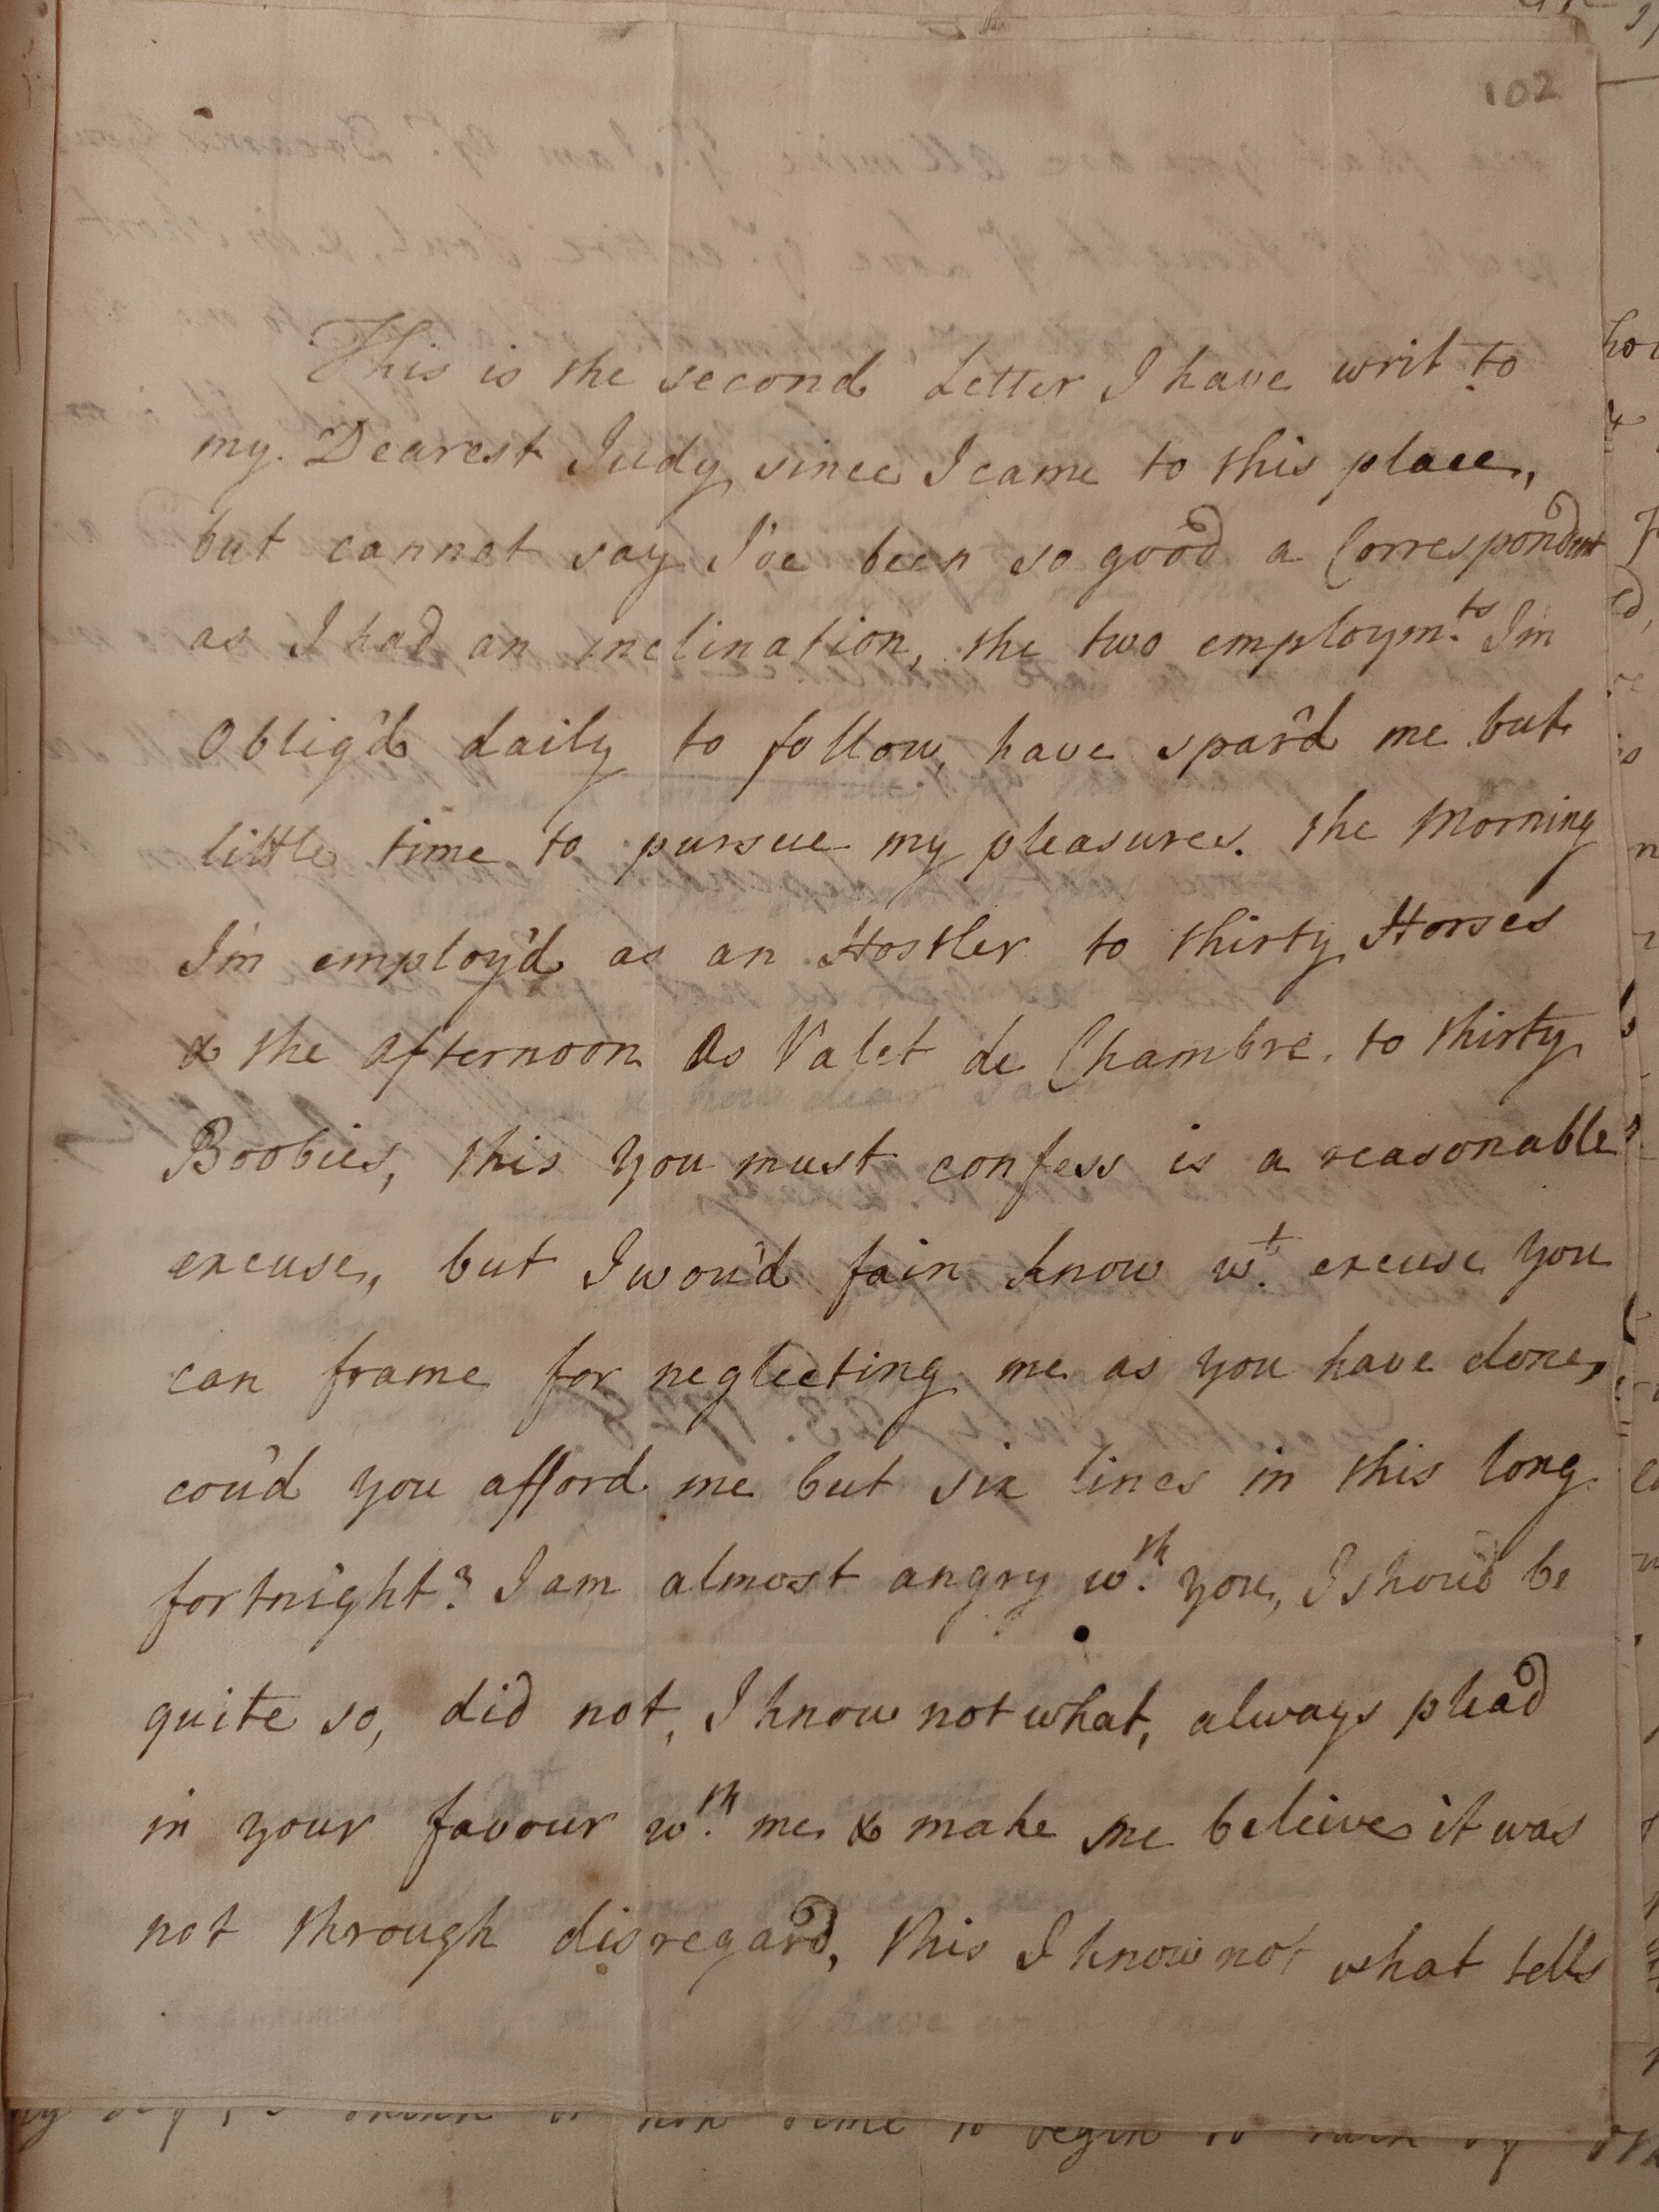 102
This is the second Letter I have writ to
my Dearest Judy since I came to this place,
but cannot say I've been so good a Correspondent
as I had an inclination, the two employm.ts I'm
Oblig'd daily to follow, have spar'd me but
little time to pursue my pleasures. the Morning
I'm employ'd as an Hostler to thirty Horses
& the afternoon as Valet de Chambre to thirty
Boobies, this you must confess is a reasonable
excuse, but I wou'd fain know w.t excuse you
can frame for neglecting me as you have done,
cou'd you afford me but six lines in this long
fortnight? I am almost angry w.th you, I shou'd be
quite so, did not, I know not what, always plead
in your favour w.th me & make me beleive it was
not through disregard, this I know not what tells